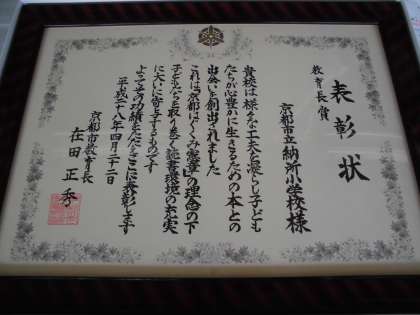 表彰状
教育長賞
京都市立納所小学校様
貴校は様々な工夫を凝らし子ども
たちが心豊かに生きるための本との
出会いを創出されました
これは「京都はぐくみ憲章」の理念の下
子どもたちを取り巻く読書環境の充実
に大いに寄与するものです
よってその功績をたたえここに表彰します
平成二十八年四月二十二日
京都市教育長
在田正秀